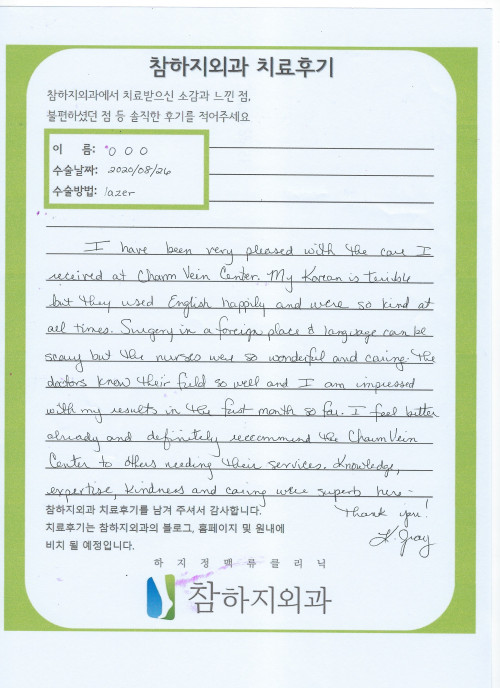 참하지외과 치료후기
참하지외과에서 치료받으신 소감과 느낀 점,
불편하셨던 점 등 솔직한 후기를 적어주세요
이 름: 0 0 0
수술날짜: 2020/08/26
수술방법: lazer
I have been very pleased with the care I
received at Charm Vein Center. My Korean is terrible
but they used English happily and were so kind at
all times. Surgery in a foreign place & language can be
scary but the nurses were so wonderful and caring. The
doctors know their field so well and I am impressed
with my results in the first month so far. I feel better
already and definitely reccommend the Charm Vein
Center to others needing their services. Knowledge,
expertise, kindness and caring were superb here -
Thank you!
K. Gray
참하지외과 치료후기를 남겨 주셔서 감사합니다.
치료후기는 참하지외과의 블로그, 홈페이지 및 원내에
비치 될 예정입니다.
하지정맥류클리닉
참하지외과